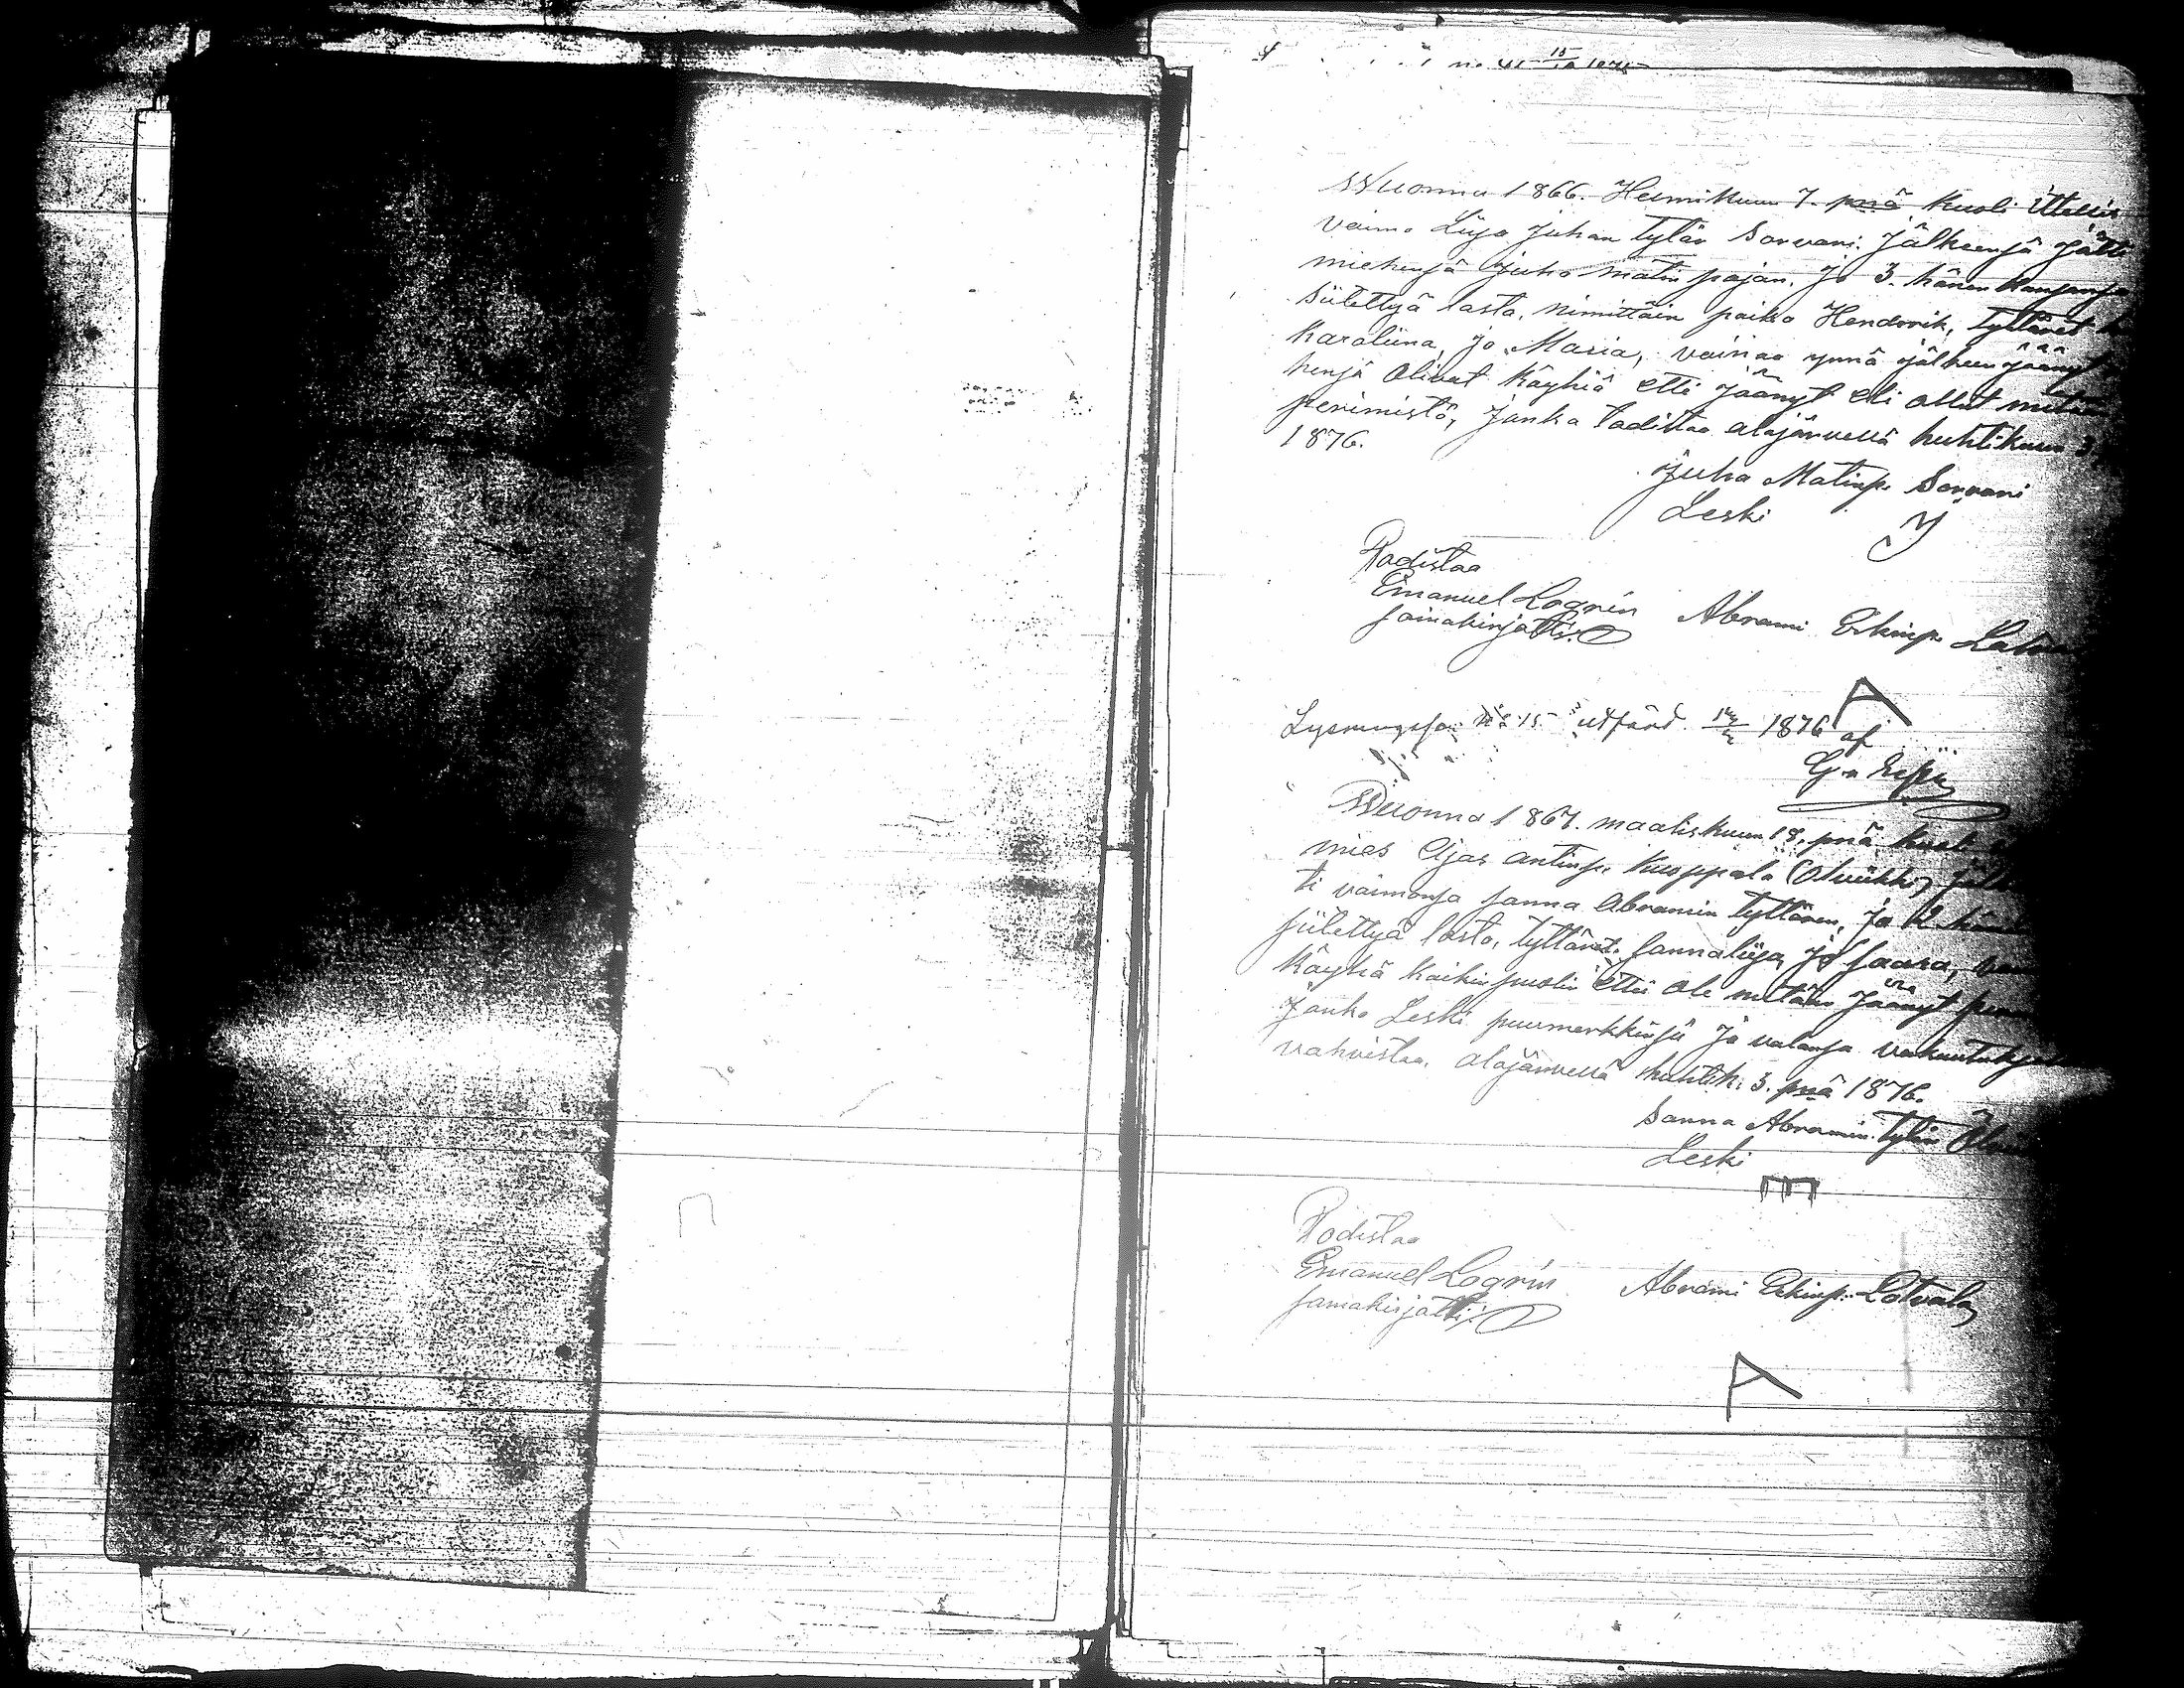 Wuonna 1866. Helmikuun 7. pnä kuoli ittellis
vaimo Liija Juhan tytär Sorvari. Jälkeenjä jätti
miehenjä Juho Matin pojan. Ja 3. hänen kansansa
siitettyä lasta, nimittäin poika Hendrik, tyttäret
Karoliina, ja Maria, vainaa ynnä jälkeen jäänyt
henjä Olivat käyhiä etti jäänyt eli ollut mitään
perimistä, Jonka todistaa alajärvellä huhtikuun 3
1876.
Juho Matinp. Sorvari
Leski
Todistaa
Emanuel Logrén
samakirjotti. Abrami Erkinp. Latvala
N:o 15. utfärd. 1876 af
Wuonna 1867. maaliskuun 18. pnä kuoli
mies Eljas antinp. Kuoppala (Olviikki) jälk
ti vaimonsa sanna Abramin tyttären, ja 2 hänen
siitettyä lasta, tyttäret. sannaliija, ja saara,
käyhiä kaikin puolin ettei ole mitään jäänyt
Jonka Leski puumerkkinsä ja valansa vakuutuksella
vahvistaa. alajärvellä huhtik. 3. pnä 1876.
Sanna Abramin tytär
Leski
Todistaa
Emanuel Logrén Abrami Erkinp. Latvala
samakirjotti.